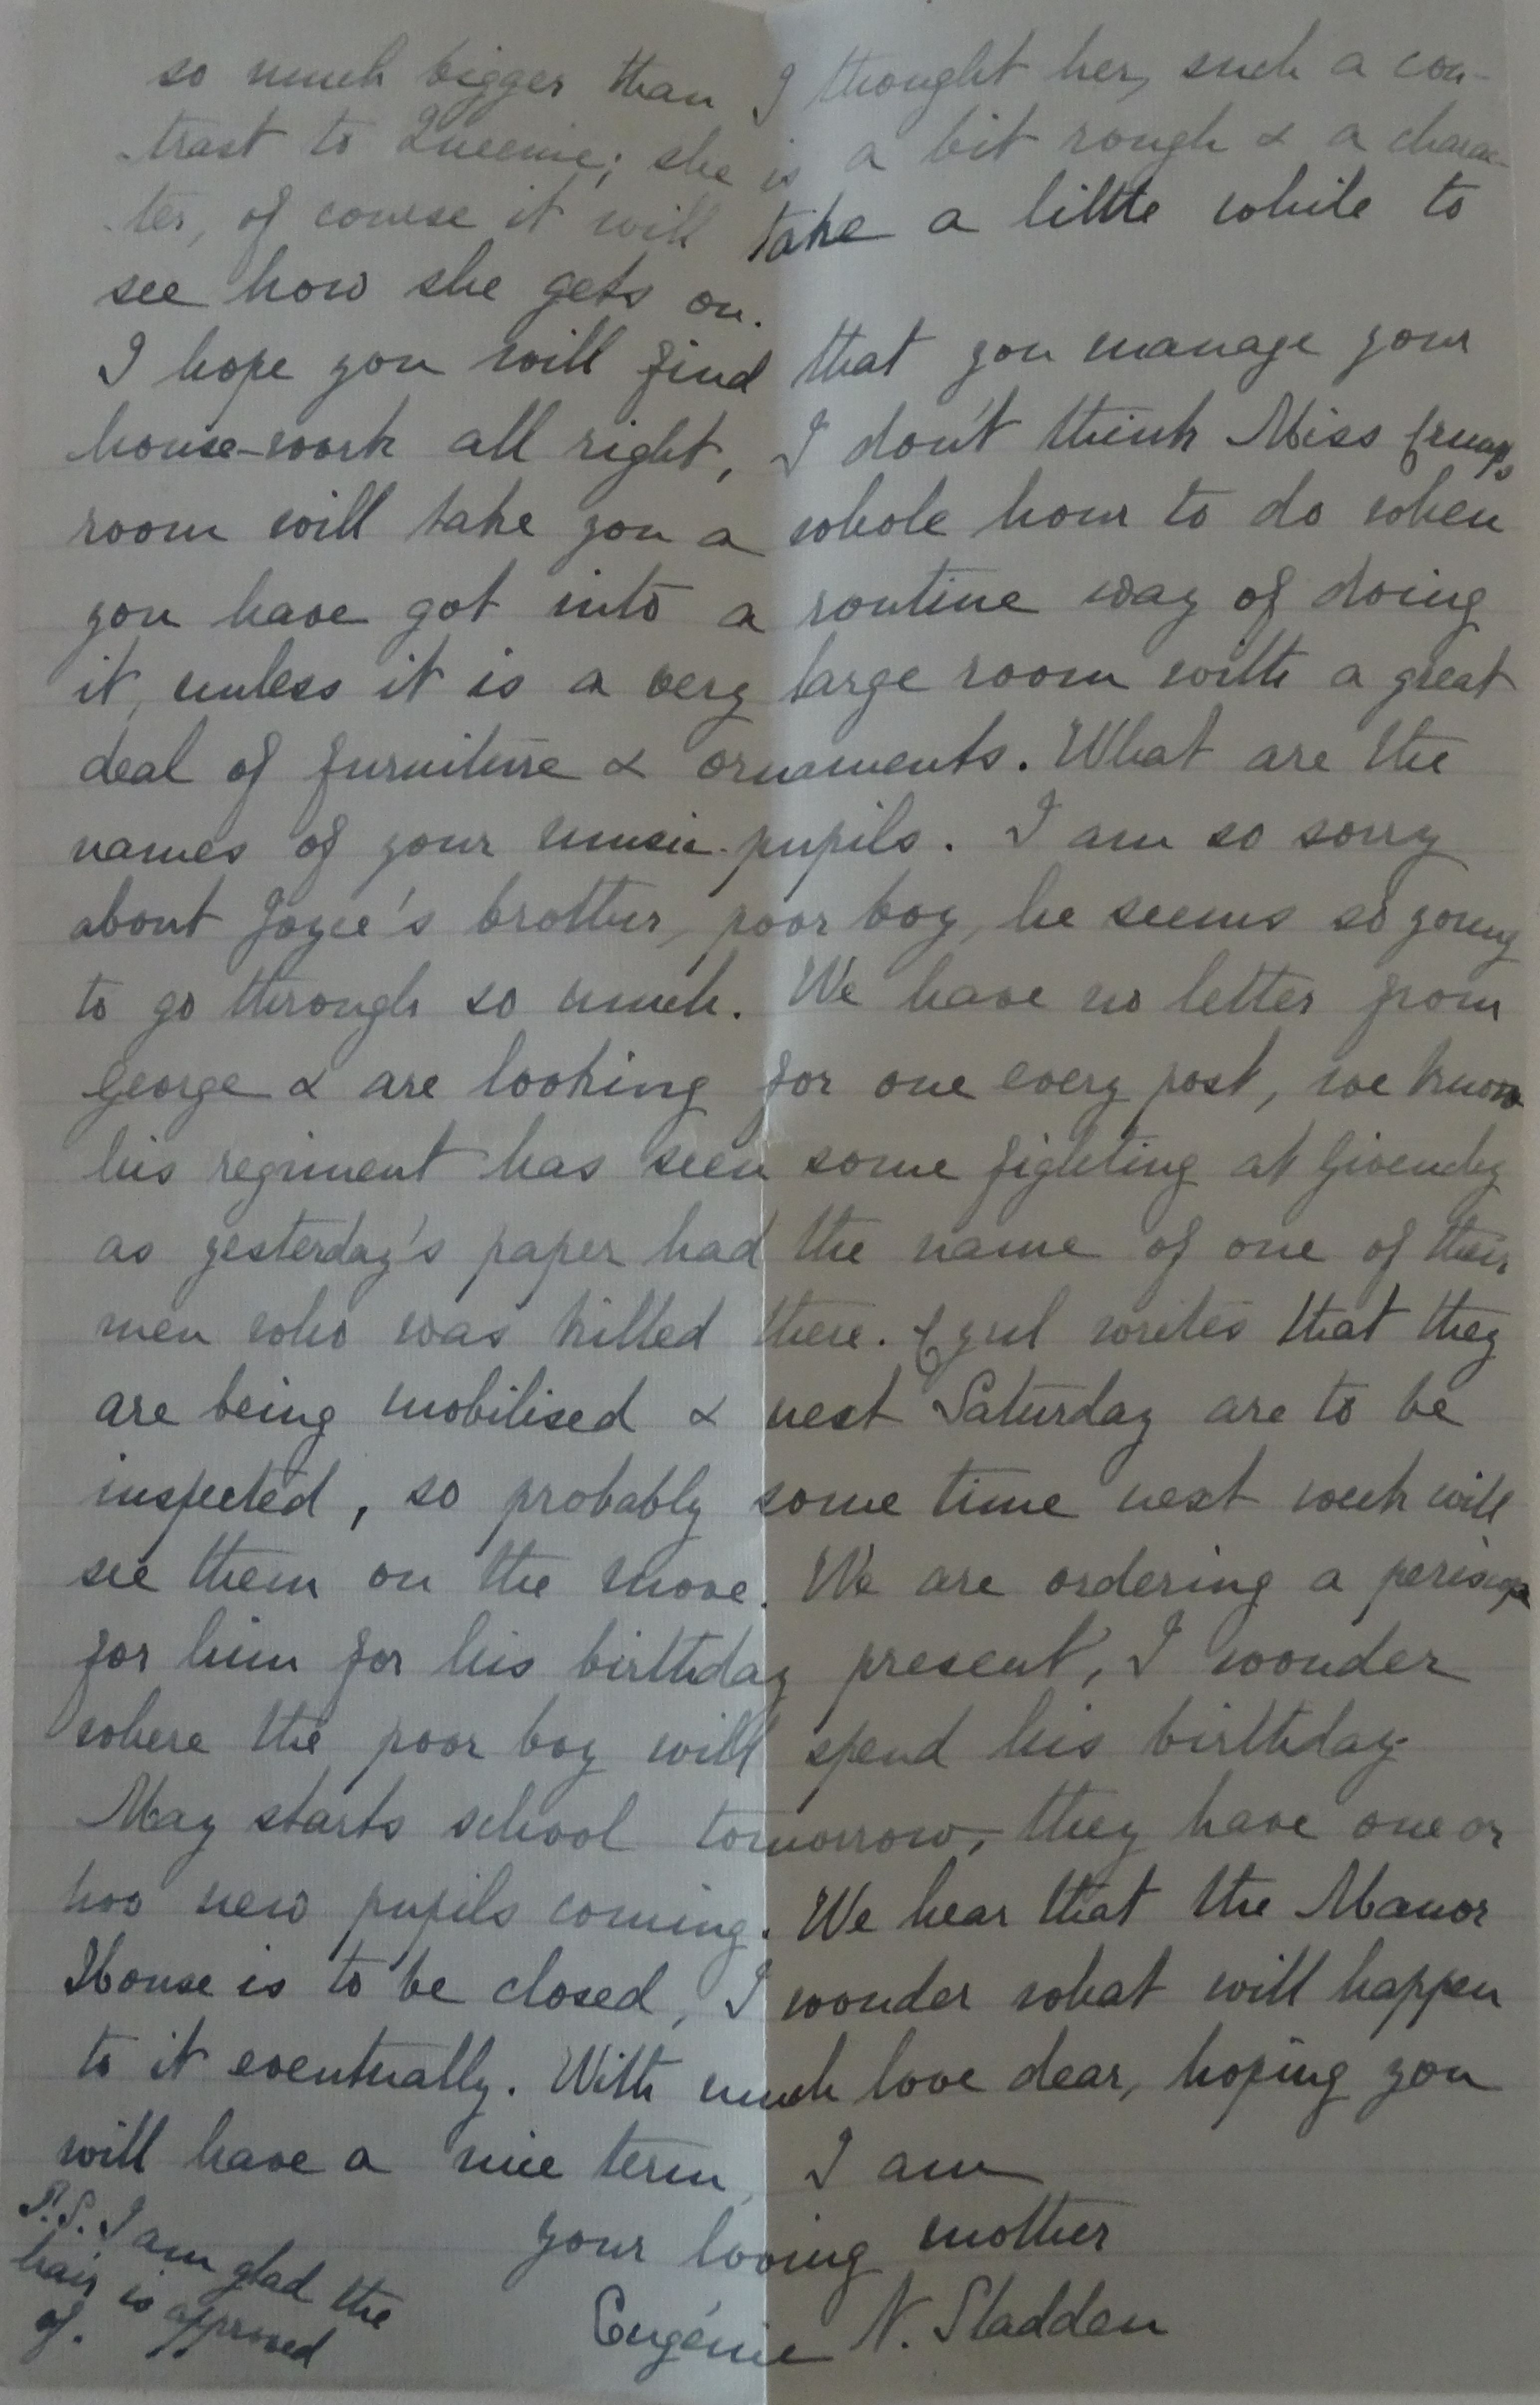 so much bigger than I thought her, such a con-
-trast to Queenie; she is a bit rough & a charac-
-ter, of course it will take a little while to
see how she gets on.
I hope you will find that you manage your
house-work all right, I don't think Miss Crump's
room will take you a whole hour to do when
you have got into a routine way of doing
it, unless it is a very large room with a great
deal of furniture & ornaments. What are the
names of your music-pupils. I am so sorry
about Joyce's brother, poor boy, he seems so young
to go through so much. We have no letter from
George & are looking for one every post, we know
his regiment has seen some fighting at Givenchy
as yesterday's paper had the name of one of their
men who was killed there. Cyril writes that they
are being mobilised & next Saturday are to be
inspected, so probably some time next week will
see them on the move. We are ordering a periscope
for him for his birthday present, I wonder
where the poor boy will spend his birthday.
May starts school tomorrow, they have one or
two new pupils coming. We hear that the Manor
House is to be closed, I wonder what will happen
to it eventually. With much love dear, hoping you
will have a nice term, I am
your loving mother
Eugénie N. Sladden
P.S. I am glad the
hair is approved
of.